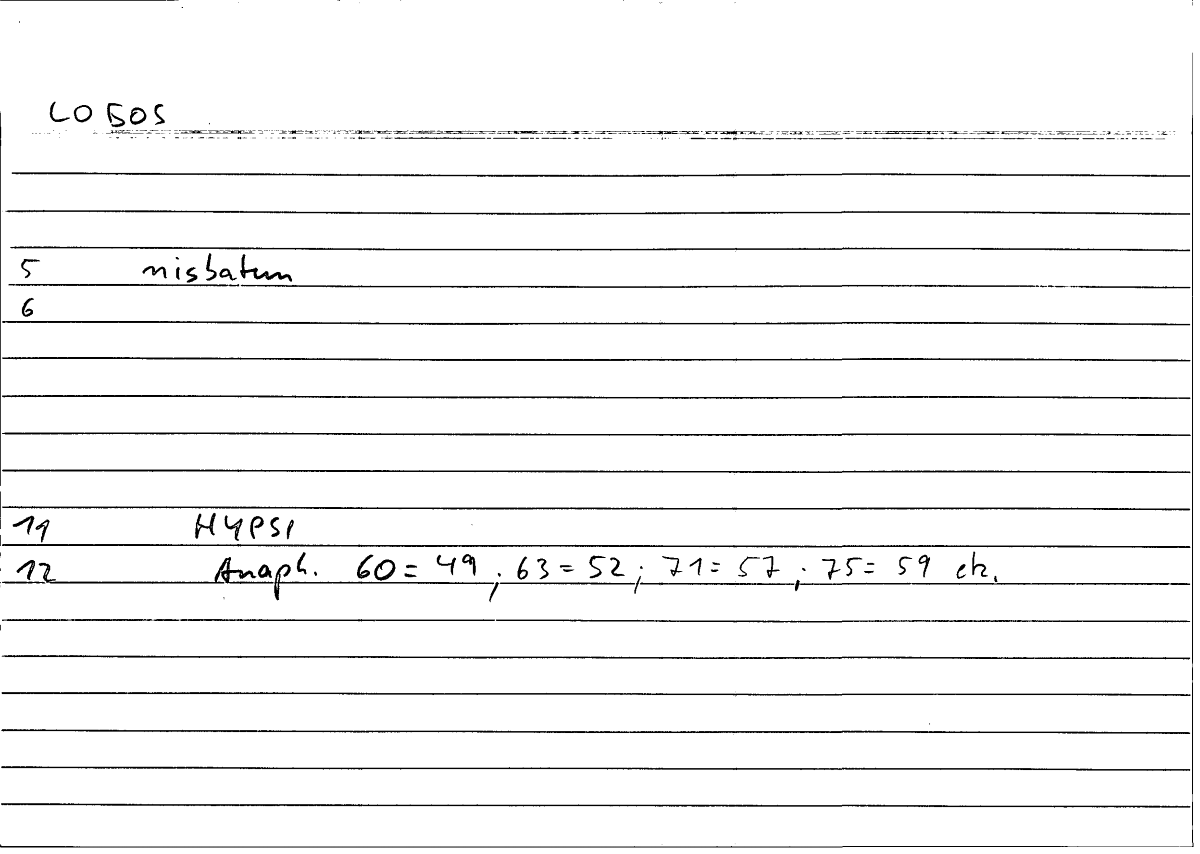 LOGOS
5 nisbatun
6
11 HYPSI
12 Anaph. 60 = 49 ; 63 = 52 ; 71 = 57 ; 75 = 59 etc.